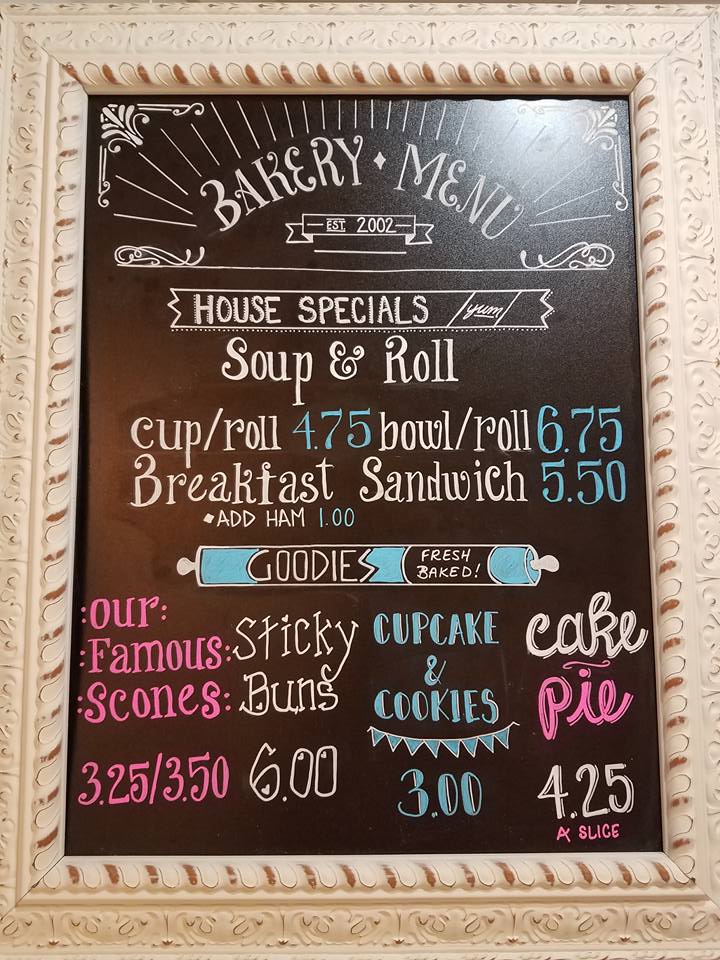 BAKERY ♦ MENU
EST. 2002
HOUSE SPECIALS yum
Soup & Roll
cup/roll 4.75 bowl/roll 6.75
Breakfast Sandwich 5.50
♦ADD HAM 1.00
GOODIES FRESH BAKED!
:our:
:Famous:
:Scones:
3.25/3.50
Sticky
Buns
6.00
CUPCAKE
&
COOKIES
3.00
cake
~
pie
4.25
A SLICE